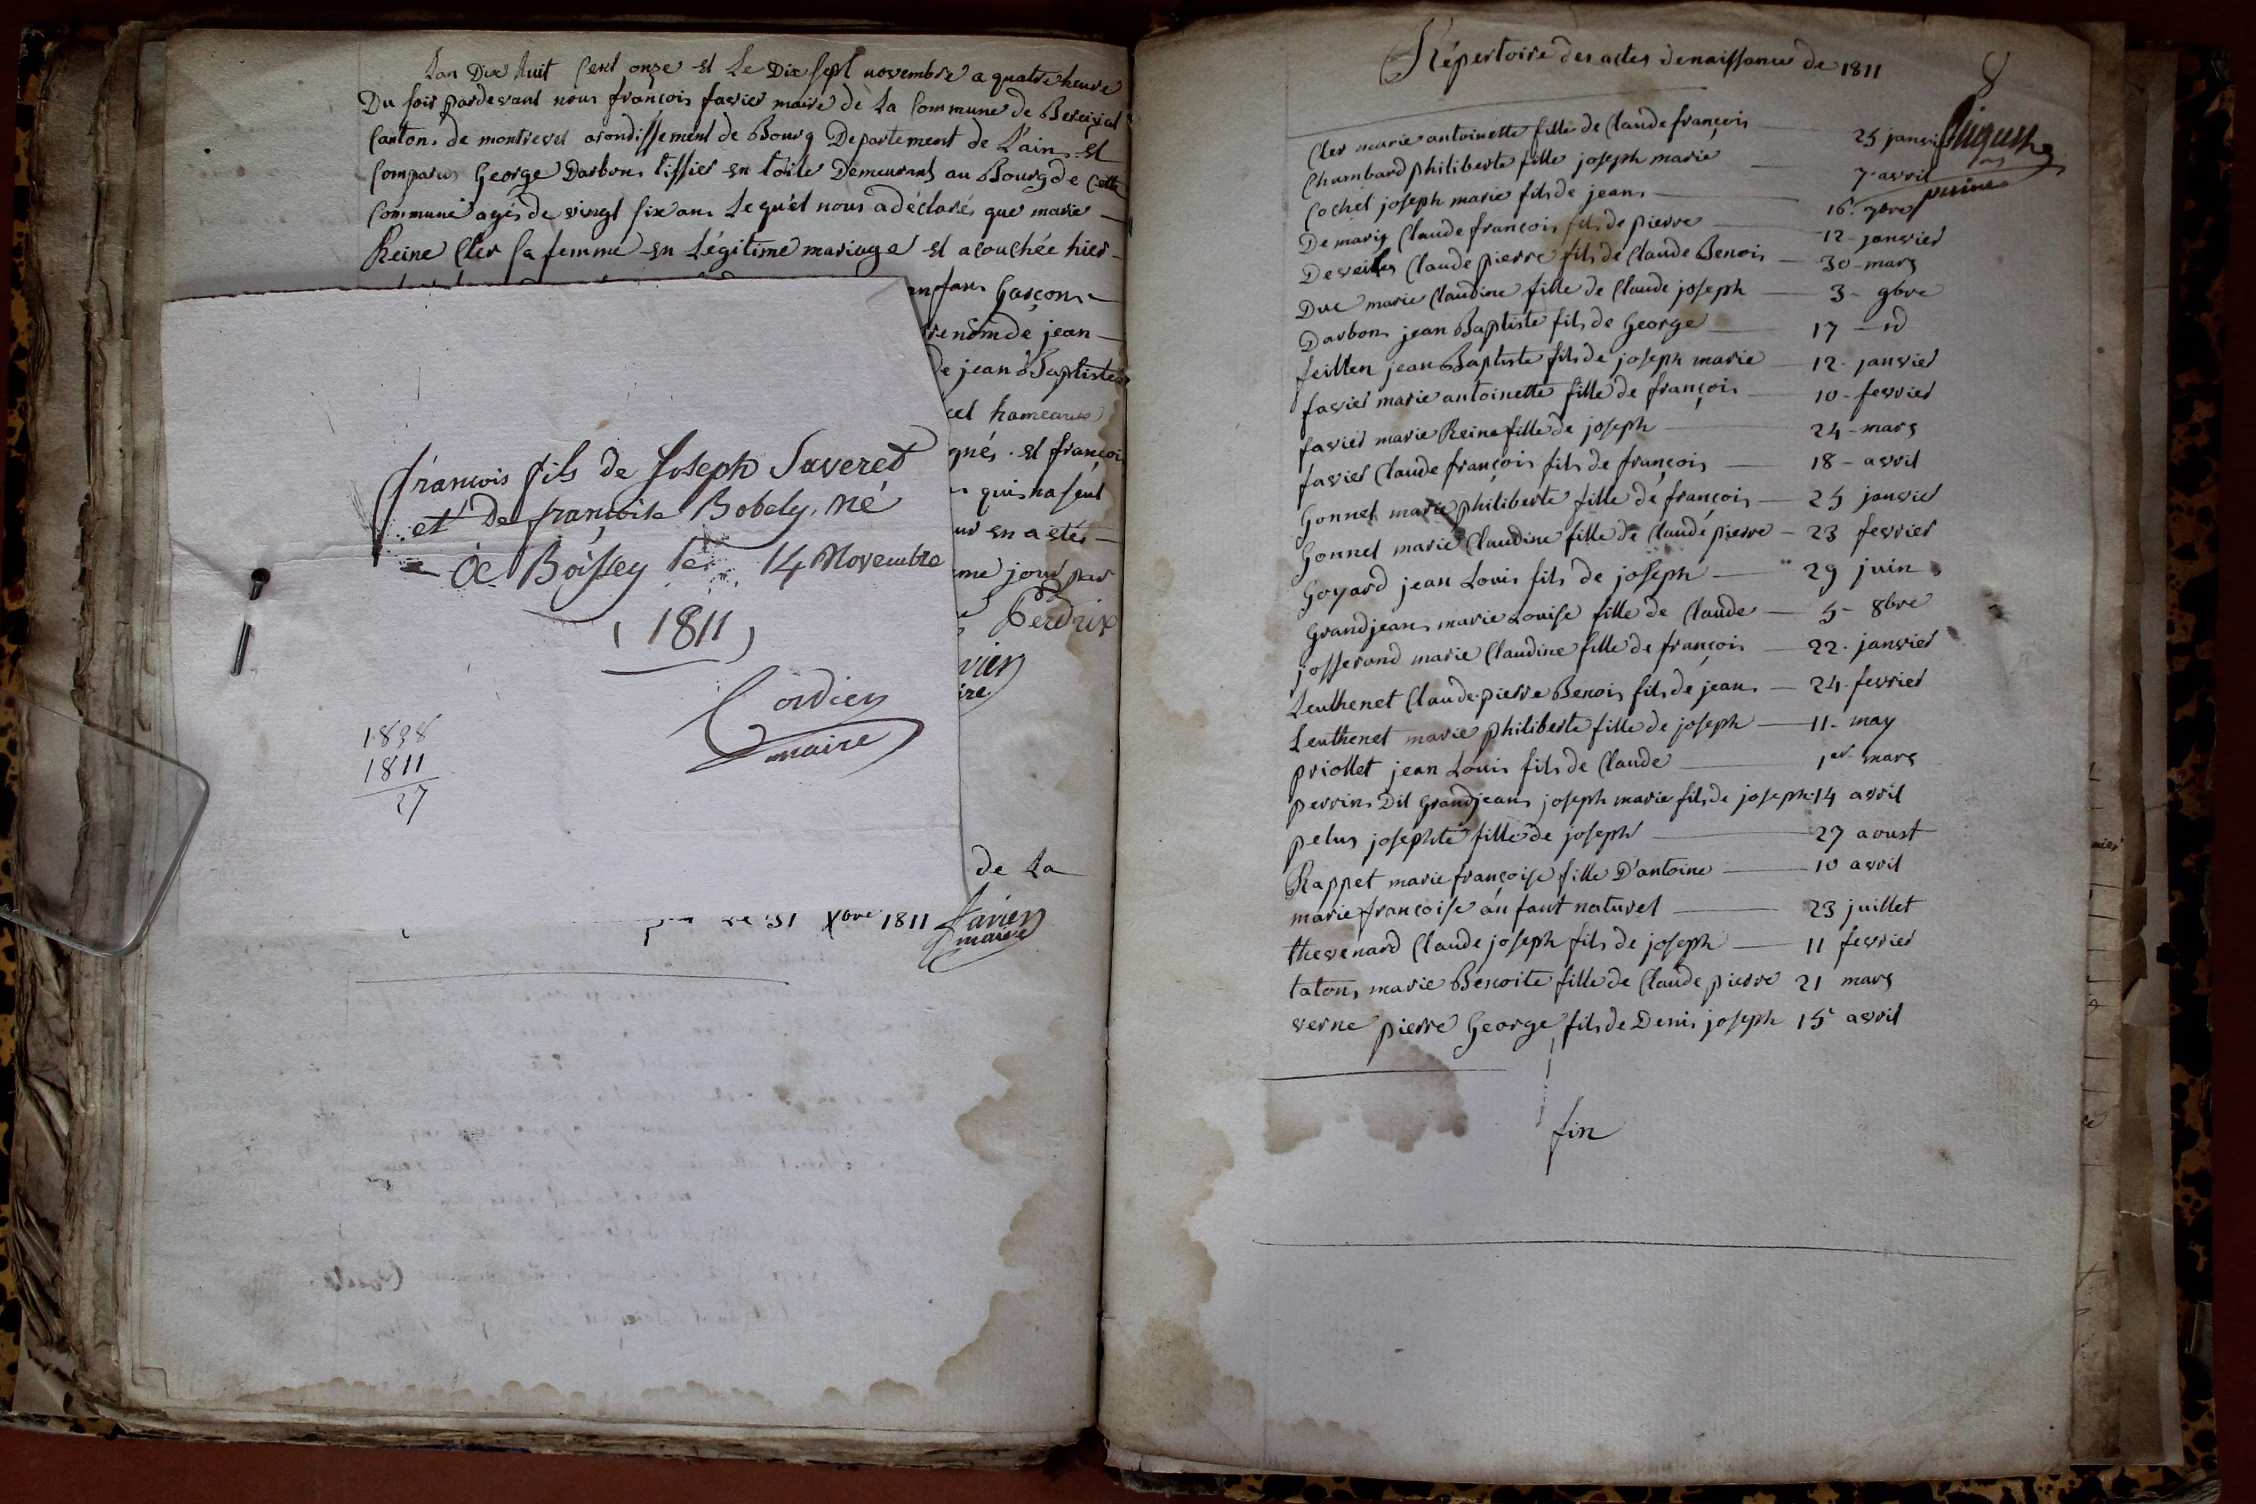 Lan Dix huit Cent onze et Le Dix sept novembre a quatre heure
Du soir pardevant nous françois favier maire de La Commune de Bereiziat
Canton de montrevel arondissement de Bourg Departement de L'ain et
Comparus George Darbon tissier en toile Demeurant au Bourg de Cette
Commune agés de vingt six an Lequel nous a déclarés que marie
Reine Cler Sa femme en Légitime mariage et acouchée hier
enfans Garçon
renom de jean
De jean Baptiste
cel hameaux
gnés . et françois
qui na seul
ur en a etés
me jour par
Perdrix
vier
ire
de La
Le 31 Xbre 1811 favier
maire
françois fils de Joseph Saveret
et De françoise Bobely, né
à Boissey le 14 Novembre
( 1811 )
Cordier
maire
1838
1811
27
Répertoire des actes de naissance de 1811
8
Cler marie antoinette fille de Claude françois 25 janvi
Chambard philiberte fille joseph marie 7 avril
Cochet joseph marie fils de jean 16 7bre
De marig Claude françois fils de pierre 12 janvier
Desveilles Claude pierre fils de Claude Benois 30 mars
Duc marie Claudine fille de Claude joseph 3 9bre
Darbon jean Baptiste fils de George 17 id
feillen jean Baptiste fils de joseph marie 12 janvier
favier marie antoinette fille de françois 10 fevrier
favier marie Reine fille de joseph 24 mars
favier Claude françois fils de françois 18 avril
Gonnet marie philiberte fille de françois 25 janvier
Gonnet marie Claudine fille de Claude pierre 23 fevrier
Goyard jean Louis fils de joseph 29 juin
Grandjean marie Louise fille de Claude 5 8bre
josserand marie Claudine fille de françois 22 janvier
Leuthenet Claude pierre Benois fils de jean 24 fevrier
Leuthenet marie philiberte fille de joseph 11 may
priollet jean Louis fils de Claude 1er mars
perrin Dit Grandjean joseph marie fils de joseph 14 avril
pelus josephte fille de joseph 27 aoust
Rappet marie françoise fille D'antoine 10 avril
marie françoise anfant naturel 23 juillet
thevenard Claude joseph fils de joseph 11 fevrier
taton marie Benoite fille de Claude pierre 21 mars
verne pierre George fils de Denis joseph 15 avril
fin